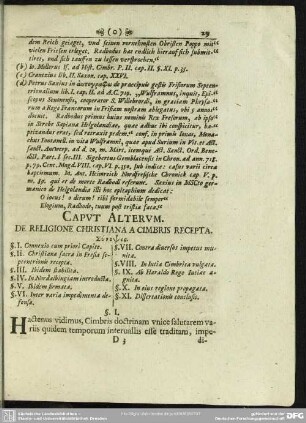 ( 0 ) 29
dem Reich gejaget, und seinen vornehmsten Obristen Poppo mit
vielen Friesen erleget, Radbodus hat endlich hierauf sich submit-
tiret, und sich tauffen zu lassen versprochen."
(b) Io. Mollerus If. ad Hist. Cimbr. P. II. cap. II. §. XI. p. 55.
(c) Crantzius lib. II. Saxon. cap. XXVI.
(d) Petrus Saxius in de praecipuis gestis Frisorum Septen-
trionalium lib. I. cap. II. ad A.C. 719. "Wulframmus, inquit, Epi-
scopus Senonensis, cooperator S. Willebrordi, in gratiam Physio-
rum a Rege Francorum in Frisiam nostram ablegatus, ubi
docuit. Radbodus primus huius nominis Rex Frisorum, ab ipso
in Syrtbe Sapiana Helgolandiae, quae actus ibi conspicitur, ba-
ptizandus erat, sed retraxit pedem" conf. in primis Ionas, Mona-
chus Fontanell. in vita Wulframni, quae apud Surium in Vit. et Act.
Sanct. Antwerp. ad d. 20. m. Mart. itemque Act. Sanct. Ord. Bene-
dict. Part. I. sec. III. Sigebertus Gemblacensis in Chron. ad ann. 718.
p. 79. Cent. Magd. VIII. cap. VI. p. 329. sub indice: casus varii circa
baptismum. It. Ant. Heimreich Nordfresische Chronick cap. V. p.
m. 52. qui et de morte Radbodi referunt. Saxius in MSCto ger-
manico de Helgolandia illi hoc epitaphium dedicat:
O locus! o dirum! tibi formidabile semper
Elogium, Radbode, tuum post tristia fata."
CAPVT ALTERVM.
DE RELIGIONE CHRISTIANA A CIMBRIS RECEPTA.
§. I. Connexio cum priori Capite.
§. II. Christiana sacra in Fresia se-
ptentrionali recepta.
§. III. Ibidem stabilita.
§. IV. In Nordalbingiam introducta.
§. V. Ibidem firmata.
§. VI. Inter varia impedimenta de-
fensa.
§. VII. Contra diversos impetus mu-
nita.
§. VIII. In hecla Cimbrica vulgata.
§. IX. ab Haraldo Rege Iutiae a-
gnita.
§. X. In eius regione propagata.
§. XI. Dissertationis conclusio.
§. I.
Hactenus vidimus, Cimbris doctrinam vnice salutarem va-
riis quidem temporum interuallis esse traditam, impe-
D 3 di-